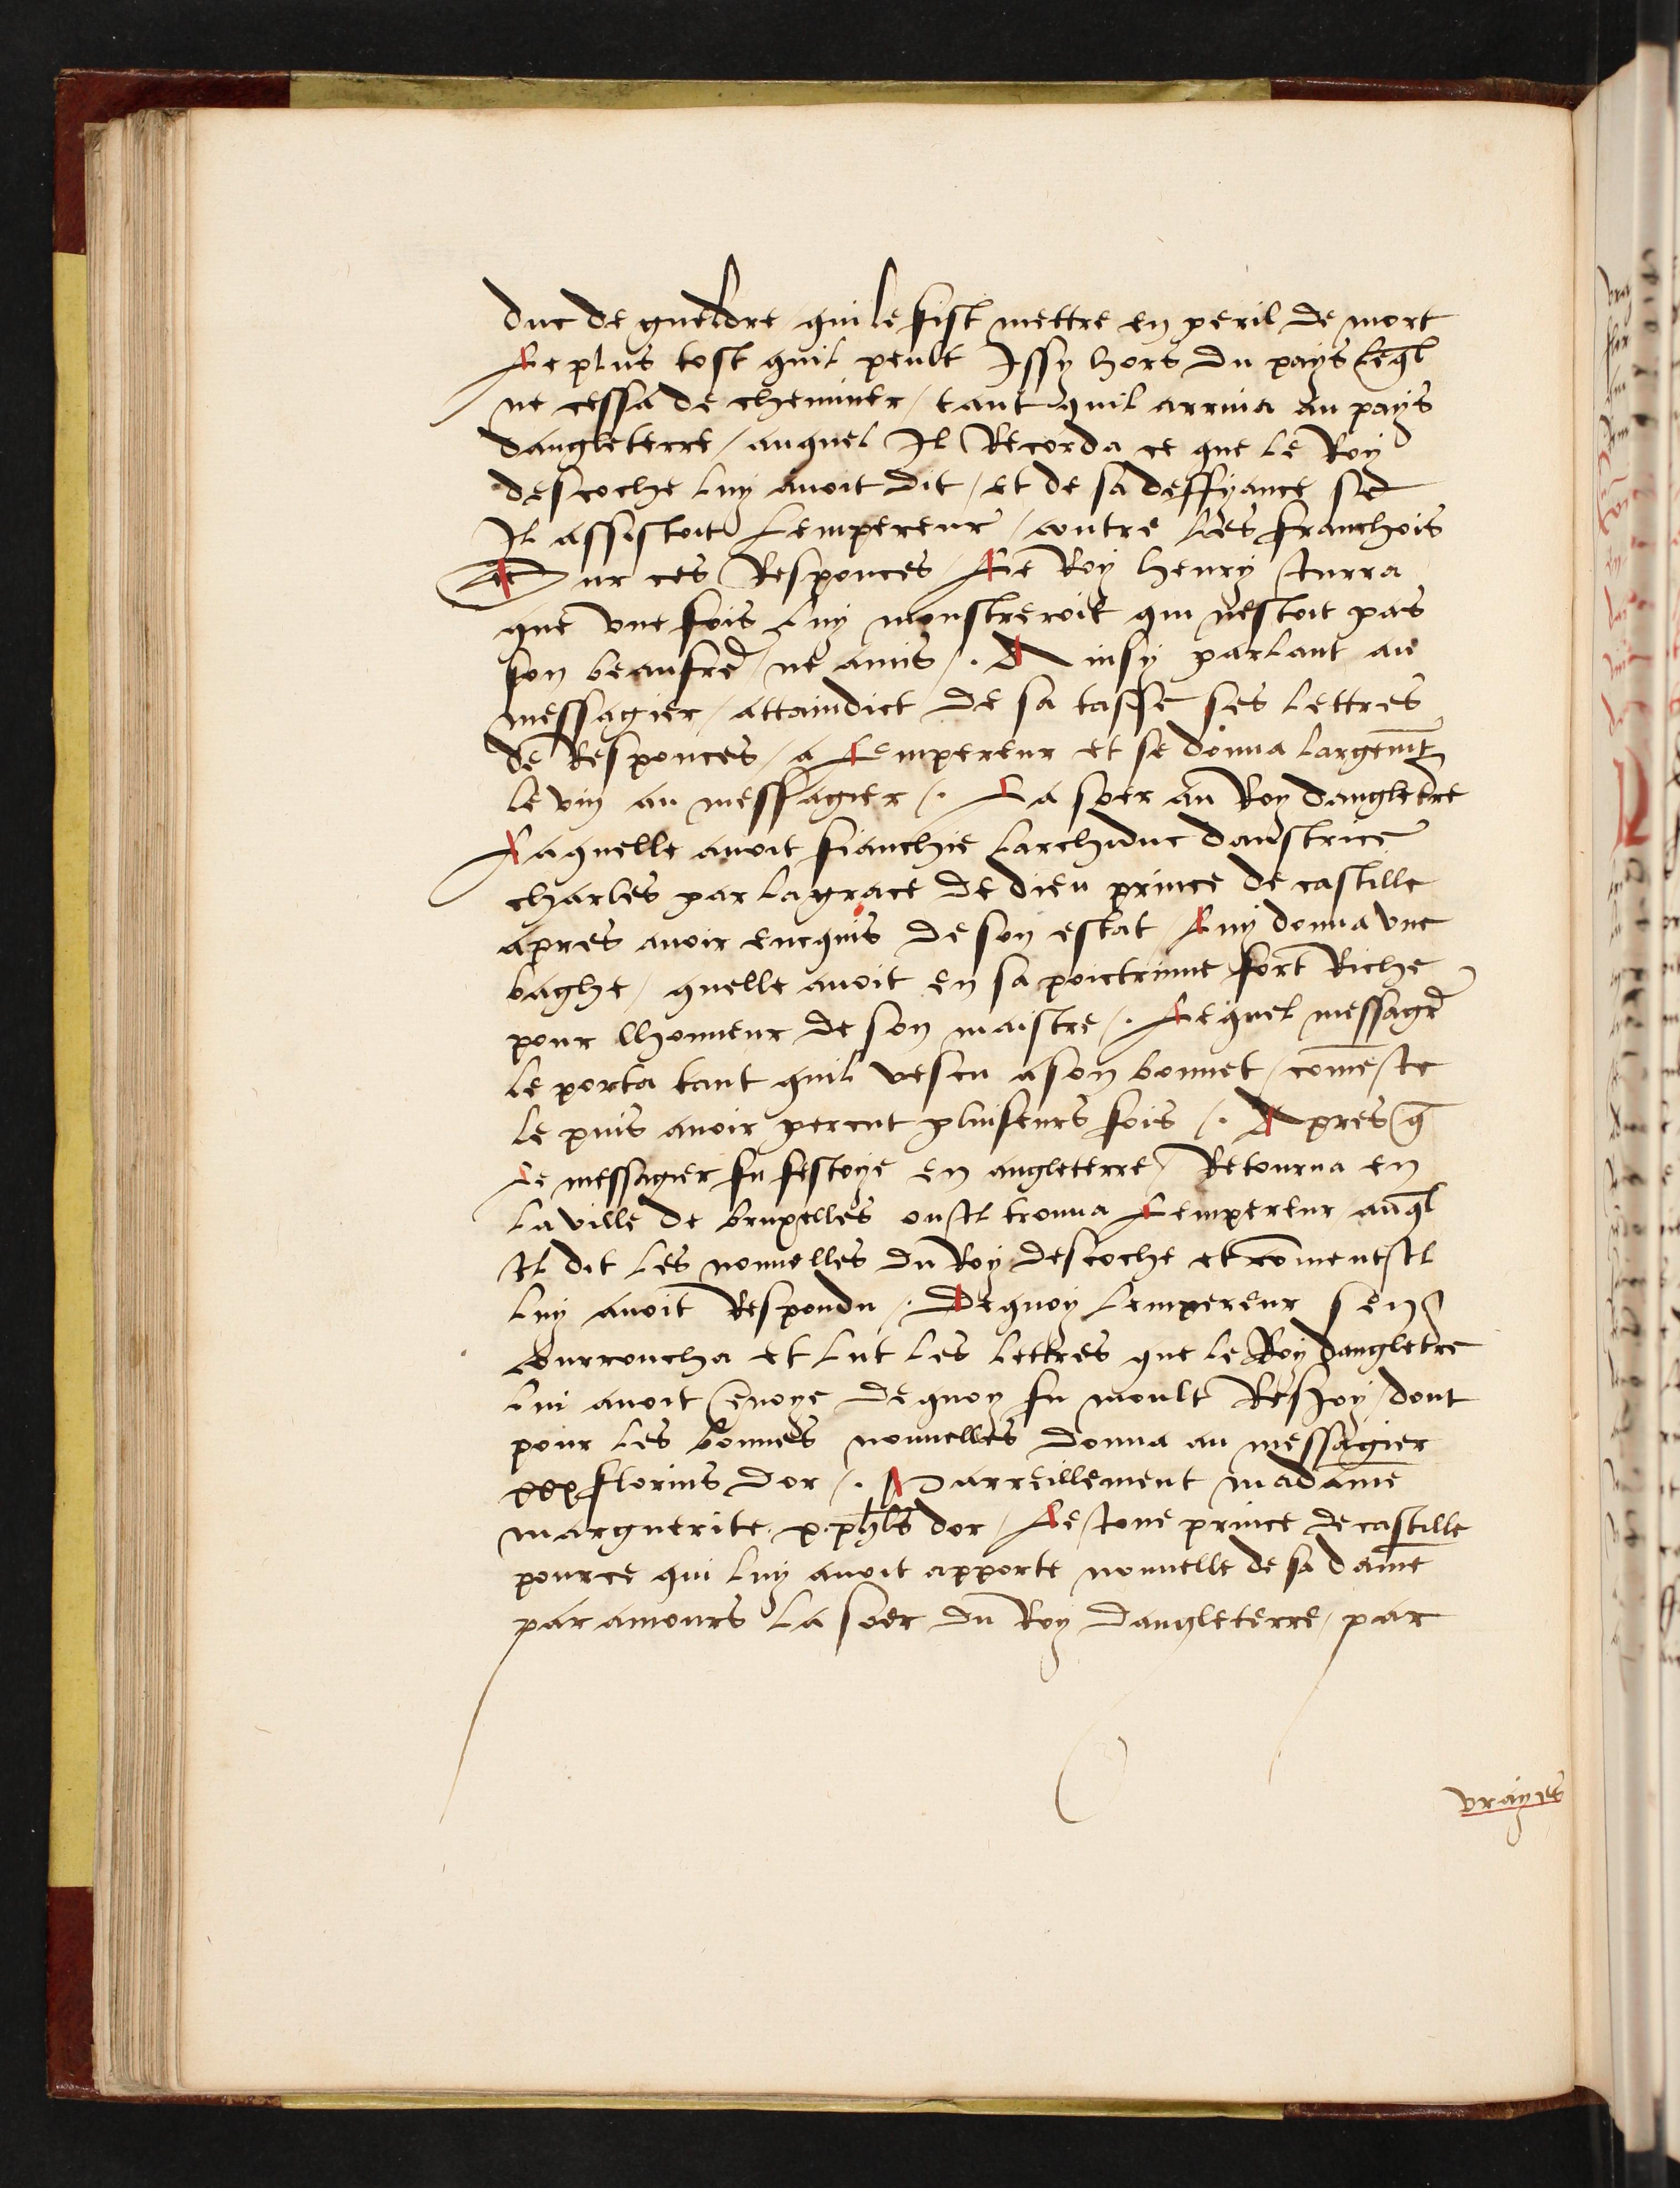 duc de gueldre quile fist mettre en peril de mort
Le plus tost quil peult Issy hors du pays leq̄l
ne cessa de cheminer / tant quil arriua au pays
dangleterre / auquel Il Recorda ce que le Roy
descoche luy auoit dit / et de sa deffyance se
Il assistoit Lempereur / contre les franchois
Sur ces Responces / Le Roy henry Iurra
que vne fois luy monstreroit qui nestoit pas
son beaufre ne amis /. Ainsy parlant au
messagier / attaindict de sa tasse ses lettres
de Responces / a Lempereur et se donna largem̄t
le vin au messagier /. La soer au Roy dangletre
Laquelle auoit fianchie larchiduc daustrice
charles par la grace de dieu prince de castille
apres auoir enquis de son estat / Luy donna vne
baghe / quelle auoit en sa poictrinne fort Riche
pour lhonneur de son maistre /. Lequel messagr
le porta tant quil vescu a son bonnet / com̄e Ie
le puis auoir percut pluiseurs fois /. Apres q̄
Le messagier fu festoye en angleterre / Retourna en
la ville de bruxelles ou Il trouua Lempereur auq̄l
Il dit les nouuelles du Roy descoche et com̄ent Il
luy auoit Respondu /. De quoy lempereur sen
Courroucha et lut les lettres que le Roy dangletre
lui auoit enuoye de quoy fu moult Resioy / dont
pour les bonnes nouuelles donna au messagier
xxx florins dor /. Parreillement madame
marguerite .x. phl̄s dor / Le Ione prince de castille
pource qui luy auoit apporte nouuelle de sa dame
par amours la soer du Roy dangleterre / par
vrayes